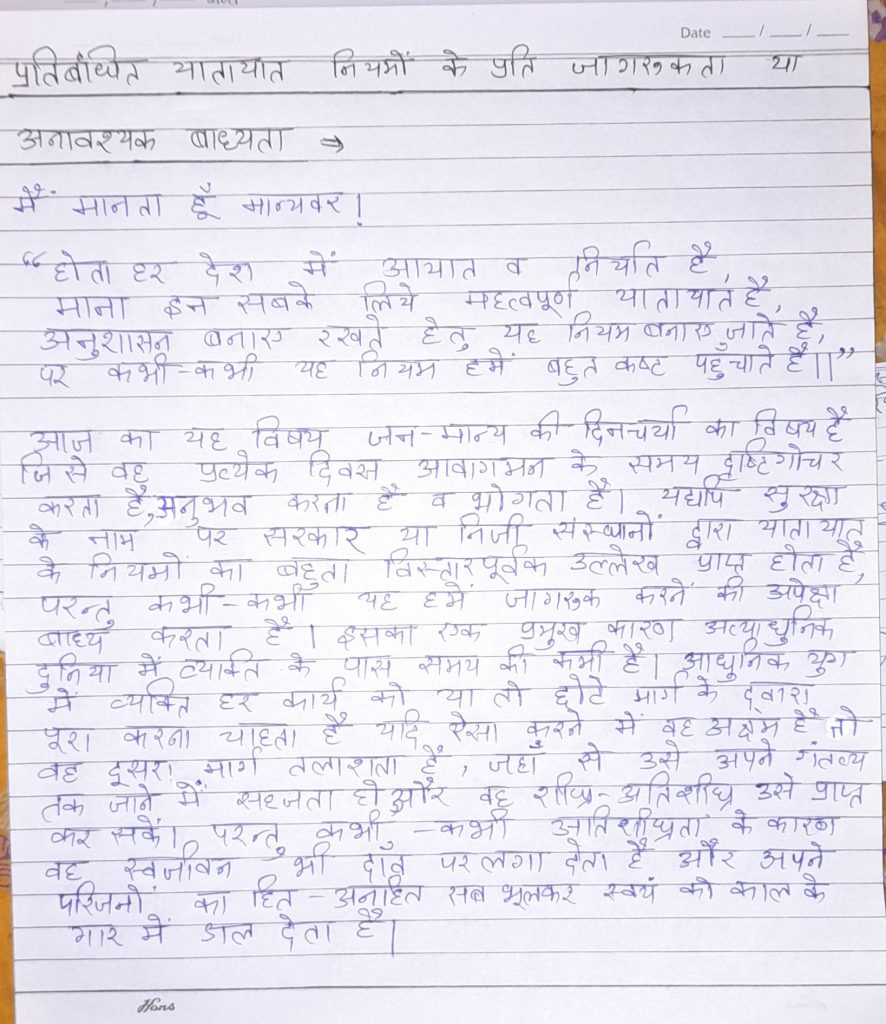 Date __/__/__
प्रतिबंधित यातायात नियमों के प्रति जागरूकता या
अनावश्यक बाध्यता ⇒
मैं मानता हूँ मान्यवर!
“होता हर देश में आयात व निर्यात है,
माना इन सबके लिये महत्वपूर्ण यातायात है,
अनुशासन बनाए रखते हेतु यह नियम बनाए जाते है,
पर कभी-कभी यह नियम हमें बहुत कष्ट पहुँचाते है।।”
आज का यह विषय जन-मान्य की दिनचर्या का विषय है
जिसे वह प्रत्येक दिवस आवागमन के समय दृष्टिगोचर
करता है, अनुभव करना है व भोगता है। यद्यपि सुरक्षा
के नाम पर सरकार या निजी संस्थानों द्वारा यातायात
के नियमों का बहुता विस्तारपूर्वक उल्लेख प्राप्त होता है,
परन्तु कभी-कभी यह हमें जागरूक करनें की अपेक्षा
बाध्य करता है। इसका एक प्रमुख कारण अत्याधुनिक
दुनिया में व्यक्ति के पास समय की कमी है। आधुनिक युग
में व्यक्ति हर कार्य को या तो छोटे मार्ग के द्वारा
पूरा करना चाहता है यदि ऐसा करने में वह अक्षम है तो
वह दूसरा मार्ग तलाशता है, जहाँ से उसे अपने गंतव्य
तक जाने में सहजता हो और वह शीघ्र-अतिशीघ्र उसे प्राप्त
कर सकें। परन्तु कभी-कभी अतिशीघ्रता के कारण
वह स्वजीवन भी दाँव पर लगा देता है और अपने
परिजनों का हित-अनहित सब भूलकर स्वयं को काल के
गार में डाल देता है।
Hans